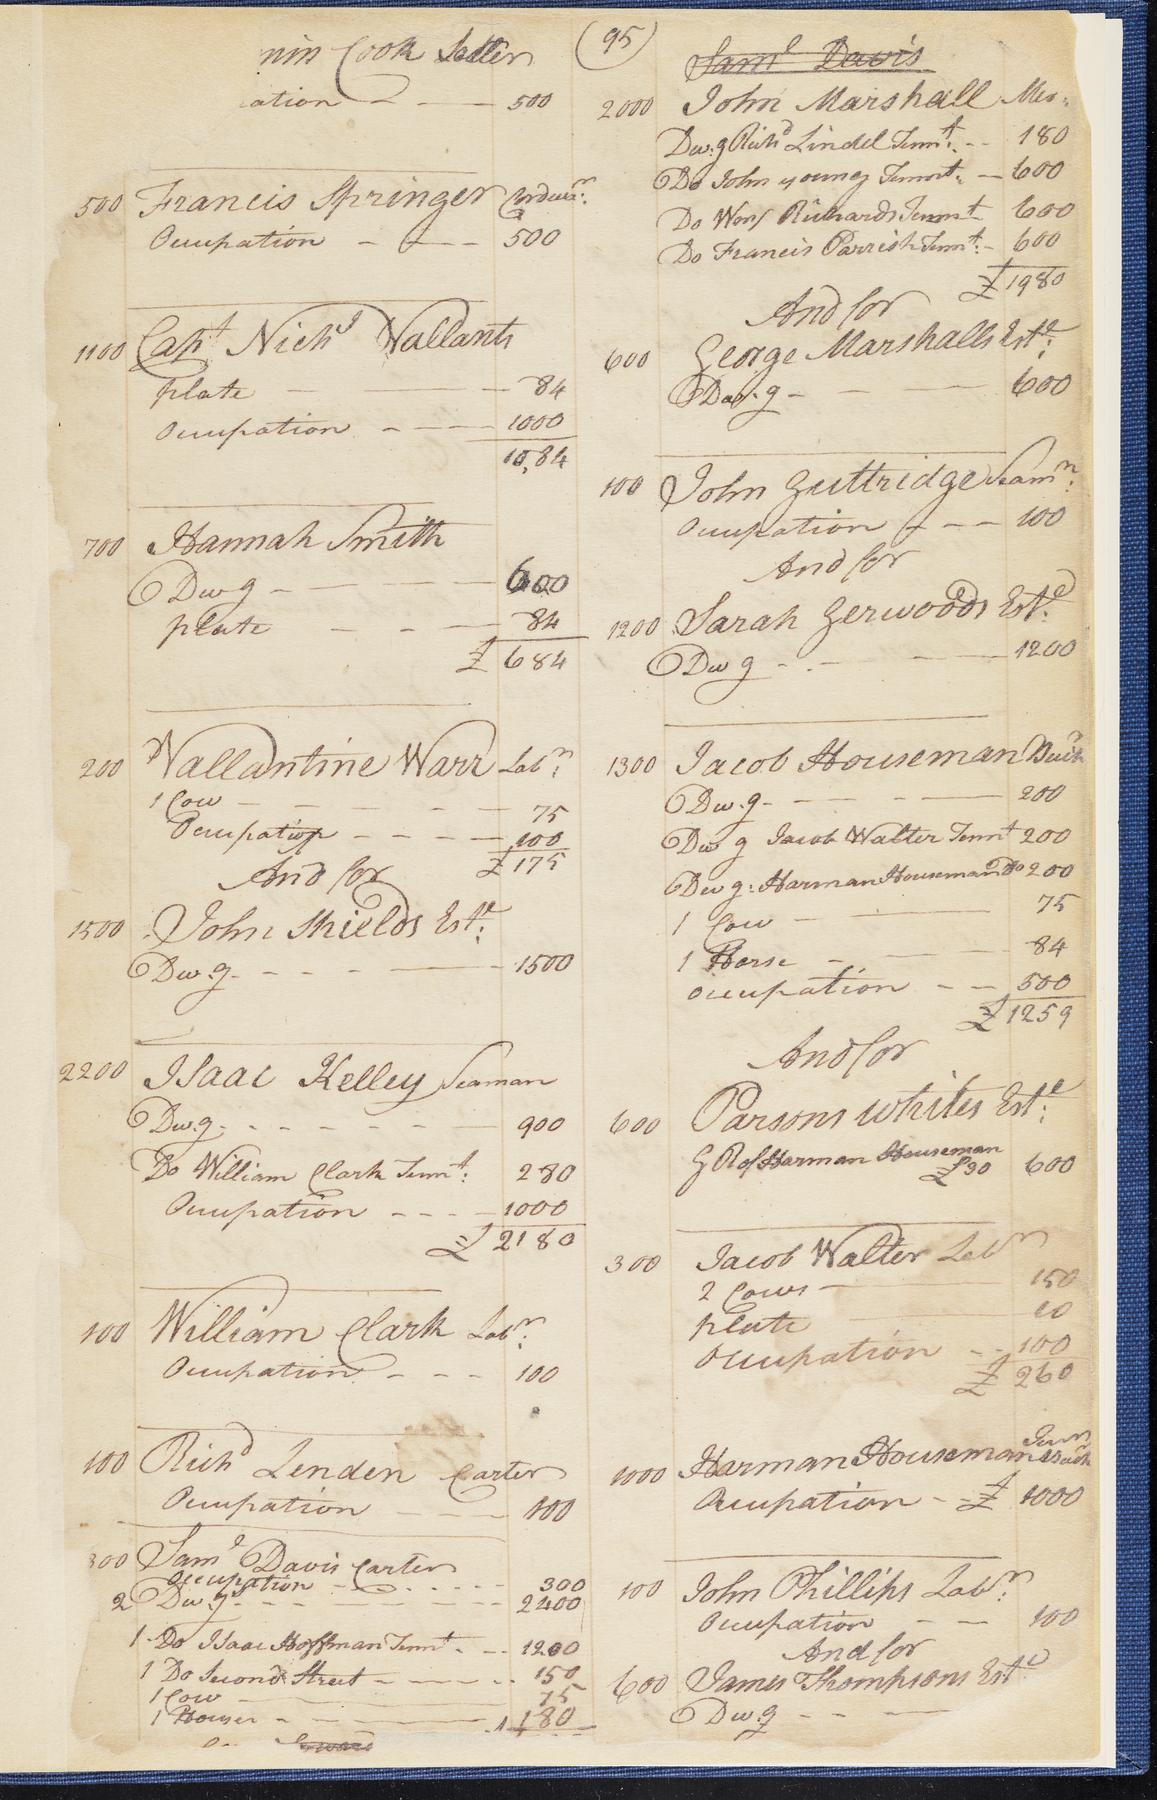 (95)
nin Cook Satler
ation - - - 500
500 Francis Springer Cordwr.
Occupation - - - 500
1100 Capt Nichs Vallants
plate - - - 84
Occupation - - - 1000
1084
700 Hannah Smith
Dwg - - - 600
plate - - - 84
£ 684
200 Vallantine Warr Labr.
1 Cow - - - - 75
Occupation - - - - 100
£ 175
And for
1500 John Shields Este.
Dw.g - - - 1500
2200 Isaac Kelley Seaman
Dw.g - - - - 900
Do William Clark Tennt. 280
Occupation - - - 1000
£ 2180
100 William Clark Labr.
Occupation - - - 100
100 Richd Lenden Carter
Occupation - - - 100
300 Saml Davis Carter
Occupation - - - - 300
2 Dw.gs - - - 2400
1 Do Isaac Hoffman Tennt - - 1200
1 Do Second Street - - - - 150
1 Cow - - - 75
1 Horses - - - 180
Saml Davis
2000 John Marshall Mer.
Dw.g Richd Lindel Tennt. - - 180
Do John young Tennt. - 600
Do Wm Richards Tennt 600
Do Francis Parrish Tennt. - 600
£ 1980
And for
600 George Marshalls Este.
Dw.g - - - 600
100 John Guttridge Seamn.
Occupation - - - 100
And for
1200 Sarah Gerwoods Este.
Dwg - - - 1200
1300 Jacob Houseman
Dw.g - - - 200
Dw g Jacob Walter Tennt 200
Dw g: Harman Houseman Do 200
1 Cow - - - 75
1 Horse - - - 84
Occupation - - 500
£ 1259
And for
600 Parsons Whites Este.
G R of Harman Houseman
£30 600
300 Jacob Walter Labr
2 Cows - 150
plate 10
Occupation - - 100
£ 260
1000 Harman Houseman
Occupation - £ 1000
100 John Phillips Labr.
Occupation - - 100
And for
600 James Thompsons Este
Dw.g - - -